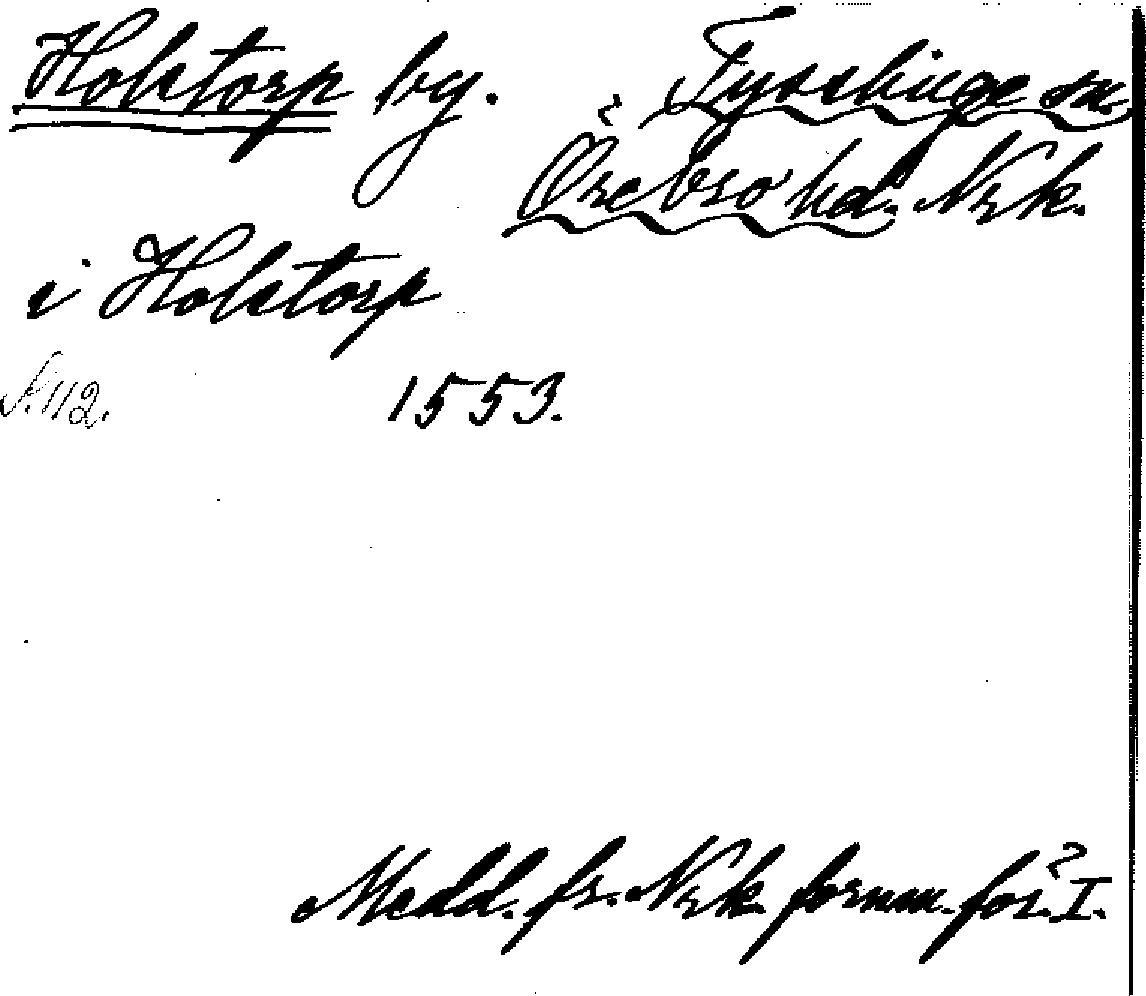 Holstorp by. Tysslinge sn
Örebro hd. Nrk.
i Holstorp
S. 112. 1553.
Medd. fr. Nrk fornm. för. I.